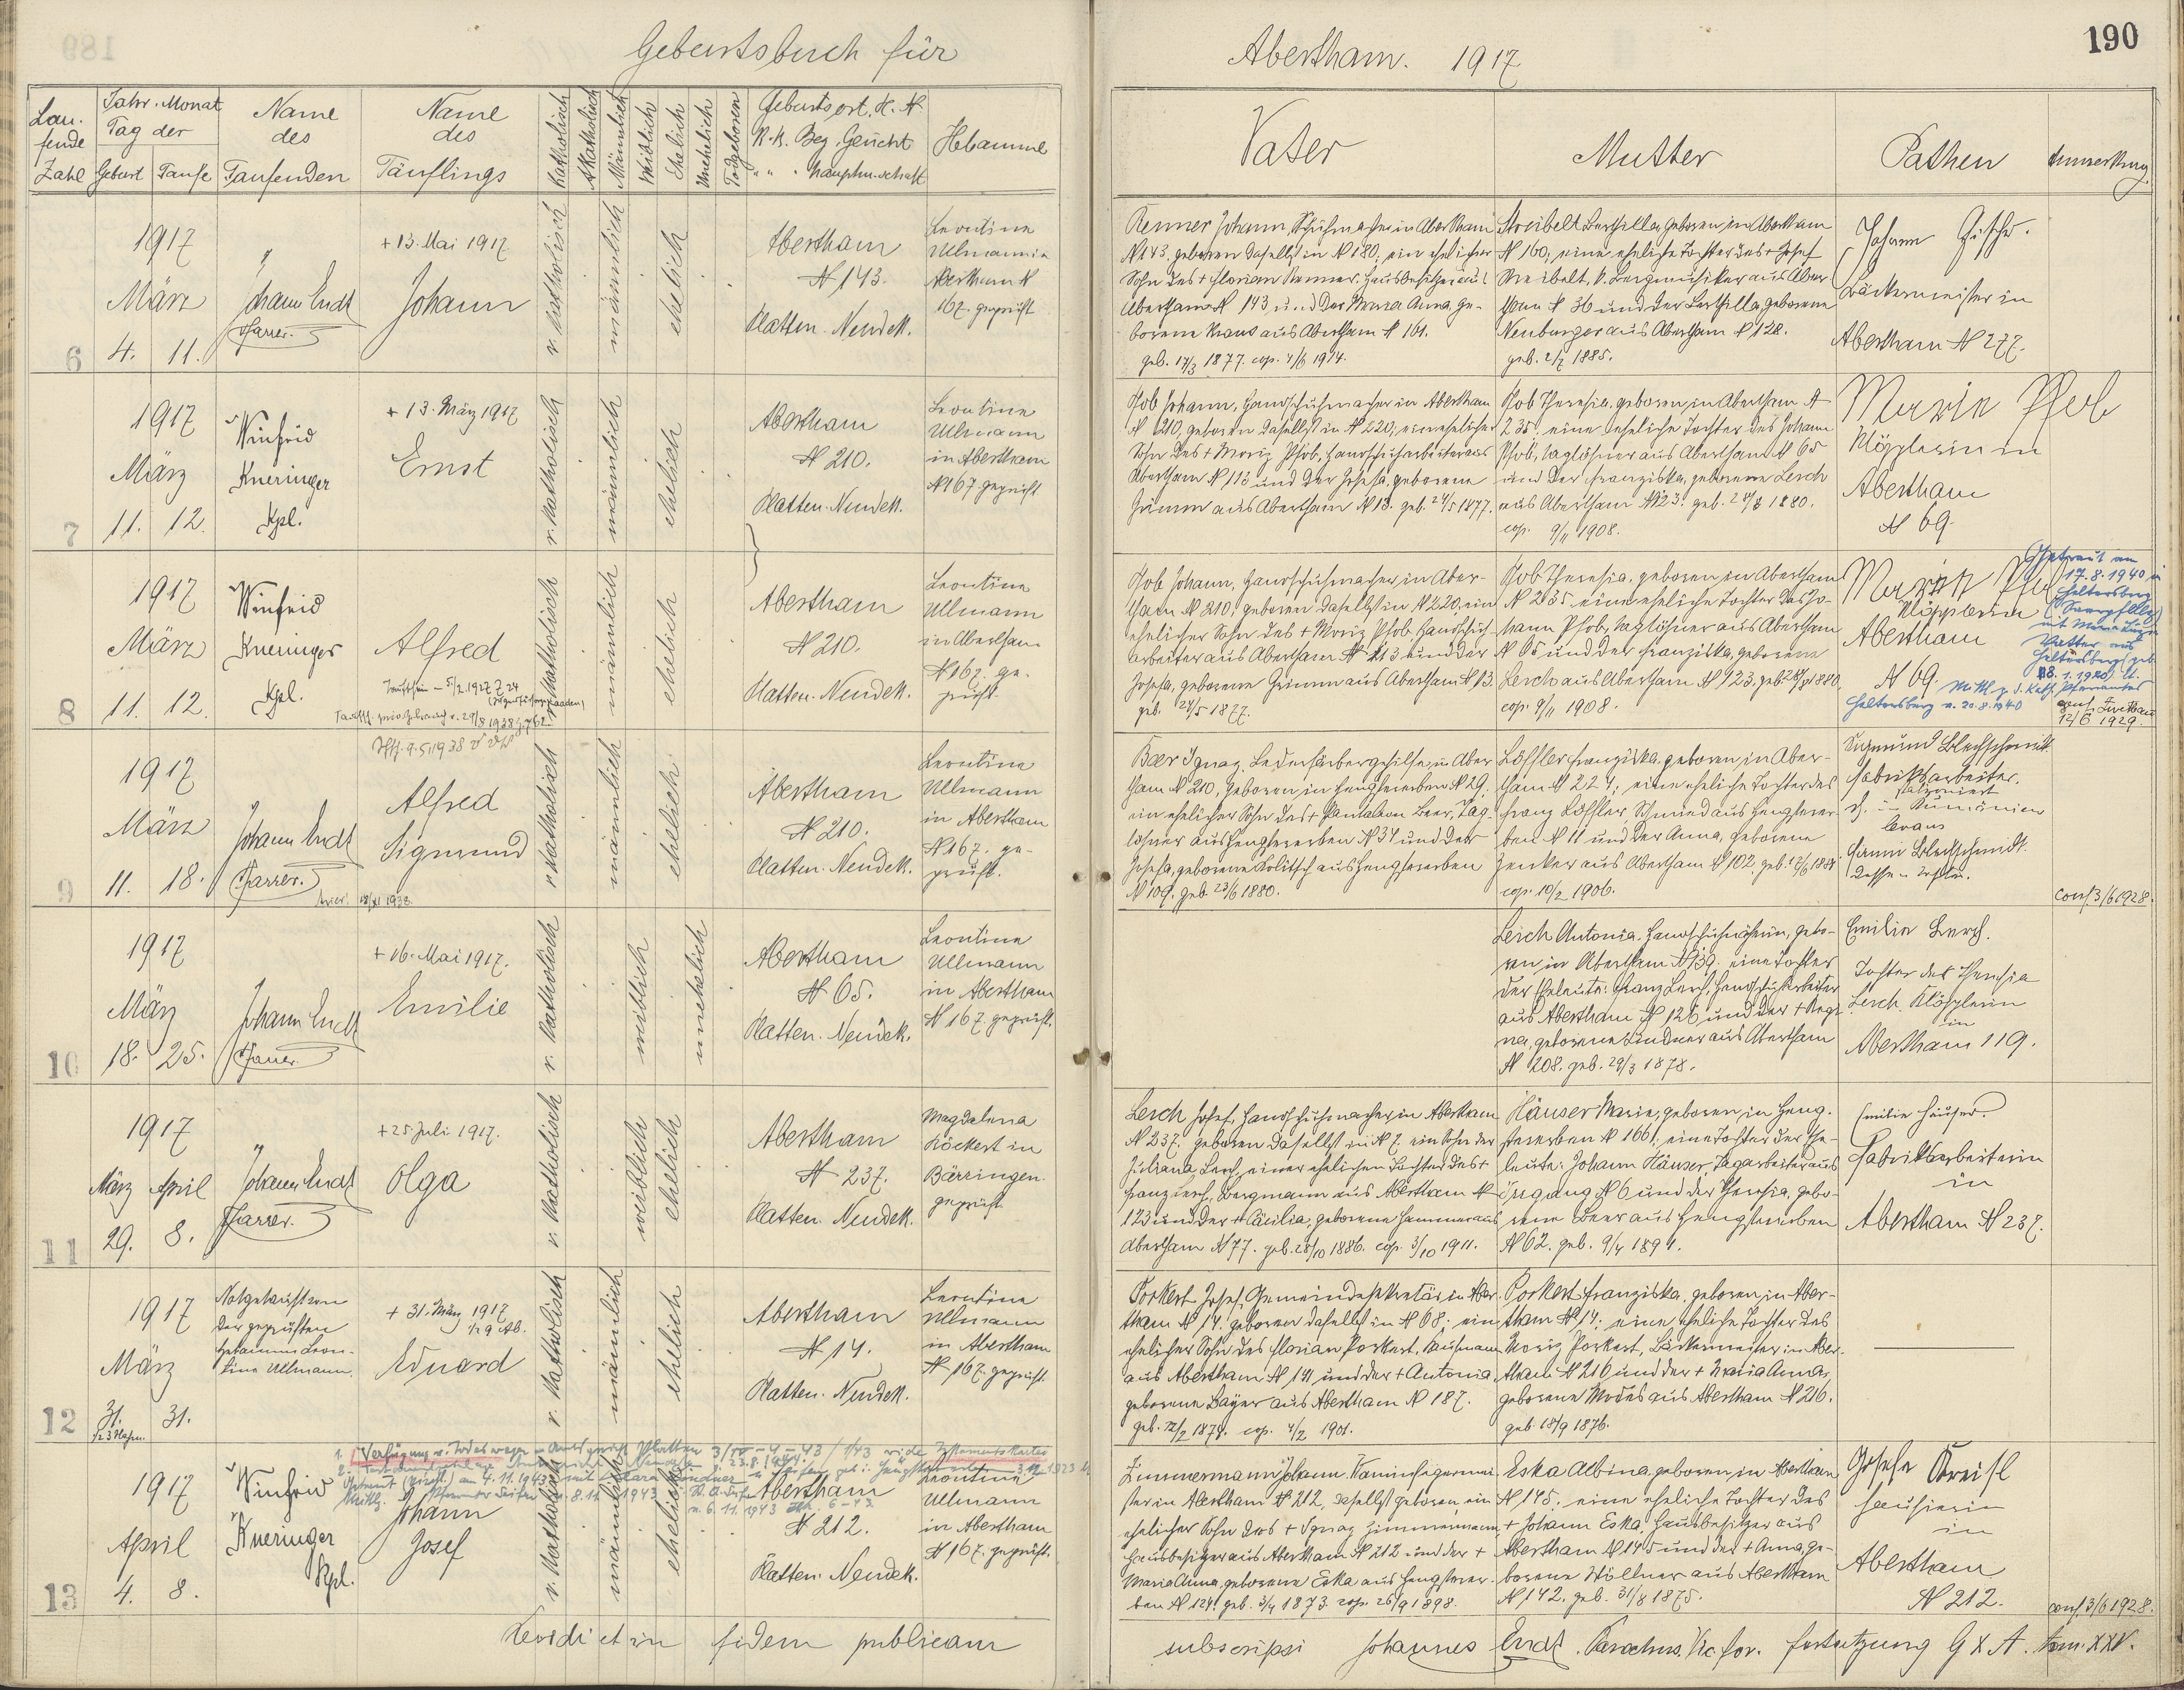 Geburtsbuch für
Abertham. 1917
190
Lau-
fende
Zahl
Jahr. Monat
Tag der
Geburt Taufe
Name
des
Taufenden
Name
des
Täuflings
Katholisch
Akatholisch
Männlich
Weiblich
Ehelich
Unehelich
Todgeboren
Geburtsort, H. N.
K. k. Bez. Gericht
" " Hauptm.schaft
Hebamme
Vater
Mutter
Pathen
Anmerkung.
6
1917
März
4. 11.
Johann Endt
Pfarrer.
+ 13. Mai 1917
Johann
r. katholisch
männlich
ehelich
Abertham
N 143.
Platten. Neudek.
Leontine
Ullmann in
Abertham N
167. geprüft
Renner Johann, Schuhmacher in Abertham
N 143, geboren daselbst in N 180; ein ehelicher
Sohn des + Florian Renner, Hausbesitzer aus
Abertham N 143 und der Maria Anna, ge-
borene Kraus aus Abertham N 161.
geb. 14/3 1877. cop. 4/6 1914.
N 160; eine eheliche Tochter des + Josef
N 36 und der Berthilla, geborene
Neuburger aus Abertham N 128.
geb. 2/7 1885.
Johann
Bäckermeister in
Abertham N 277.
7
1917
März
11. 12.
Winfrid
Kneringer
Kpl.
+ 13. März 1917
Ernst
r. katholisch
männlich
ehelich
Abertham
N 210.
Platten. Neudek.
Leontine
Ullmann
in Abertham
N 167 geprüft
Pfob Johann, Handschuhmacher in Abertham
N 210, geboren daselbst in N 220; ein ehelicher
Sohn des + Moriz Pfob, Handschuharbeiter aus
Abertham N 113 und der Josefa, geborene
Grimm aus Abertham N 13. geb. 24/5 1877.
Pfob Theresia, geboren in Abertham N
235; eine eheliche Tochter des Johann
Pfob, Taglöhner aus Abertham N 65
und der Franziska, geborene Lerch
aus Abertham N 123. geb. 28/8 1880.
cop. 9/11 1908.
Marie Pfob
Klöpplerin in
Abertham
N 69.
8
1917
März
11. 12.
Winfrid
Kneringer
Kpl.
Alfred
r. katholisch
männlich
ehelich
Abertham
N 210.
Platten. Neudek.
Leontine
Ullmann
in Abertham
N 167. ge-
prüft.
Pfob Johann, Handschuhmacher in Aber-
tham N 210, geboren daselbst in N 220; ein
ehelicher Sohn des + Moriz Pfob, Handschuh-
arbeiter aus Abertham N 113 und der
Josefa, geborene Grimm aus Abertham N 13.
geb. 24/5 1877.
Pfob Theresia, geboren in Abertham
N 235 eine eheliche Tochter des Jo-
hann Pfob, Taglöhner aus Abertham
N 65 und der Franziska, geborene
Lerch aus Abertham N 123. geb. 28/8 1880.
cop. 9/11 1908.
Klöpplerin
Abertham
N 69.
Getraut am
17.8.1940 in
Geltersberg
(Saarpfalz)
18.1.1920) lt.
Mittl. d. kath. Pfarramtes
Geltersberg v. 20.8.1940
12/6 1929.
9
1917
März
11. 18.
Johann Endt
Pfarrer.
Alfred
Sigmund
r. katholisch
männlich
ehelich
Abertham
N 210.
Platten. Neudek.
Leontine
Ullmann
in Abertham
N 167. ge-
prüft.
Baer Ignaz, Lederfärbergehilfe in Aber-
tham N 210, geboren in Hengstererben N 29;
ein ehelicher Sohn des + Pantaleon Beer, Tag-
löhner aus Hengstererben N 34 und der
Josefa, geborene Kolitsch aus Hengstererben
N 109. geb. 23/6 1880.
Löffler Franziska, geboren in Aber-
tham N 224; eine eheliche Tochter des
Franz Löffler, Schmied aus Hengsterer-
ben N 11 und der Anna, geborene
Zenker aus Abertham N 102.
cop. 10/2 1906.
Sigmund Blechschmidt
Fabriksarbeiter.
in Rumänien
Blechschmidt
conf. 3/6 1928.
10
1917
März
18. 25.
Johann Endt
Pfarrer.
+ 16. Mai 1917.
Emilie
r. katholisch
weiblich
unehelich
Abertham
N 65.
Platten. Neudek.
Leontine
Ullmann
in Abertham
N 167. geprüft.
Lerch Antonia, Handschuhnäherin, gebo-
ren in Abertham N 139. eine Tochter
der Eheleute: Franz Lerch, Handschuharbeiter
aus Abertham N 126 und der + Regi-
na, geborene Lindner aus Abertham
N 208. geb. 29/3 1878.
Emilie Lerch.
Tochter der Theresia
Lerch Klöpplerin
in
Abertham 119.
11
1917
März April
29. 8.
Johann Endt
Pfarrer.
+ 25. Juli 1917.
Olga
r. katholisch
weiblich
ehelich
Abertham
N 237.
Platten. Neudek.
Magdalena
Köckert in
Bärringen
geprüft.
Lerch Josef, Handschuhmacher in Abertham
N 237. geboren daselbst in N 7. ein Sohn der
Juliana Lerch, einer ehelichen Tochter des +
Franz Lerch, Bergmann aus Abertham N
123 und der + Cäcilia, geborene Hammer aus
Abertham N 77. geb. 28/10 1886. cop. 3/10 1911.
Häuser Marie, geboren in Heng-
stererben N 166; eine Tochter der Ehe-
leute: Johann Häuser, Tagarbeiter aus
Irrgang N 6 und der Theresia, gebo-
rene Beer aus Hengstererben
N 62. geb. 9/4 1894.
Emilie Häuser.
Fabriksarbeiterin
in
Abertham N 237.
12
1917
März
31. 31.
Notgetauft von
der geprüften
Hebamme Leon-
tine Ullmann.
+ 31. März 1917
1/2 9 Ab.
Eduard
r. katholisch
männlich
ehelich
Abertham
N 14.
Platten. Neudek.
Leontine
Ullmann
in Abertham
N 167. geprüft.
Porkert Josef, Gemeindesekretär in Aber-
tham N 14. geboren daselbst in N 68; ein
ehelicher Sohn des Florian Porkert, Kaufmann
aus Abertham N 141 und der + Antonia
geborene Bayer aus Abertham N 187.
geb. 12/2 1874. cop. 4/2 1901.
Porkert Franziska, geboren in Aber-
tham N 14; eine eheliche Tochter des
Moriz Porkert, Bäckermeister in Aber-
tham N 216 und der + Maria Anna,
geborene Modes aus Abertham N 216.
geb. 18/9 1876.
13
1917
April
4. 8.
Winfrid
Kneringer
Kpl.
Johann
Josef
r. katholisch
männlich
ehelich
Abertham
N 212.
Platten. Neudek.
Leontine
Ullmann
in Abertham
N 167. geprüft.
Zimmermann Johann, Kaminfegermei-
ster in Abertham N 212, daselbst geboren, ein
ehelicher Sohn des + Ignaz Zimmermann
Hausbesitzer aus Abertham N 212 und der +
Maria Anna, geborene Eska aus Hengsterer-
ben N 124. geb. 3/4 1873. cop. 26/9 1898.
Eska Albina, geboren in Abertham
N 145. eine eheliche Tochter des
+ Johann Eska, Hausbesitzer aus
Abertham N 145 und der + Anna, ge-
borene Wöllner aus Abertham
N 142. geb. 31/8 1875.
Josefa Kreisl
Hausierin
in
Abertham
N 212.
conf. 3/6 1928.
in fidem publicam
subscripsi Johannes Endt. Parochus. Vic. for. Fortsetzung G X A. tom. XXV.